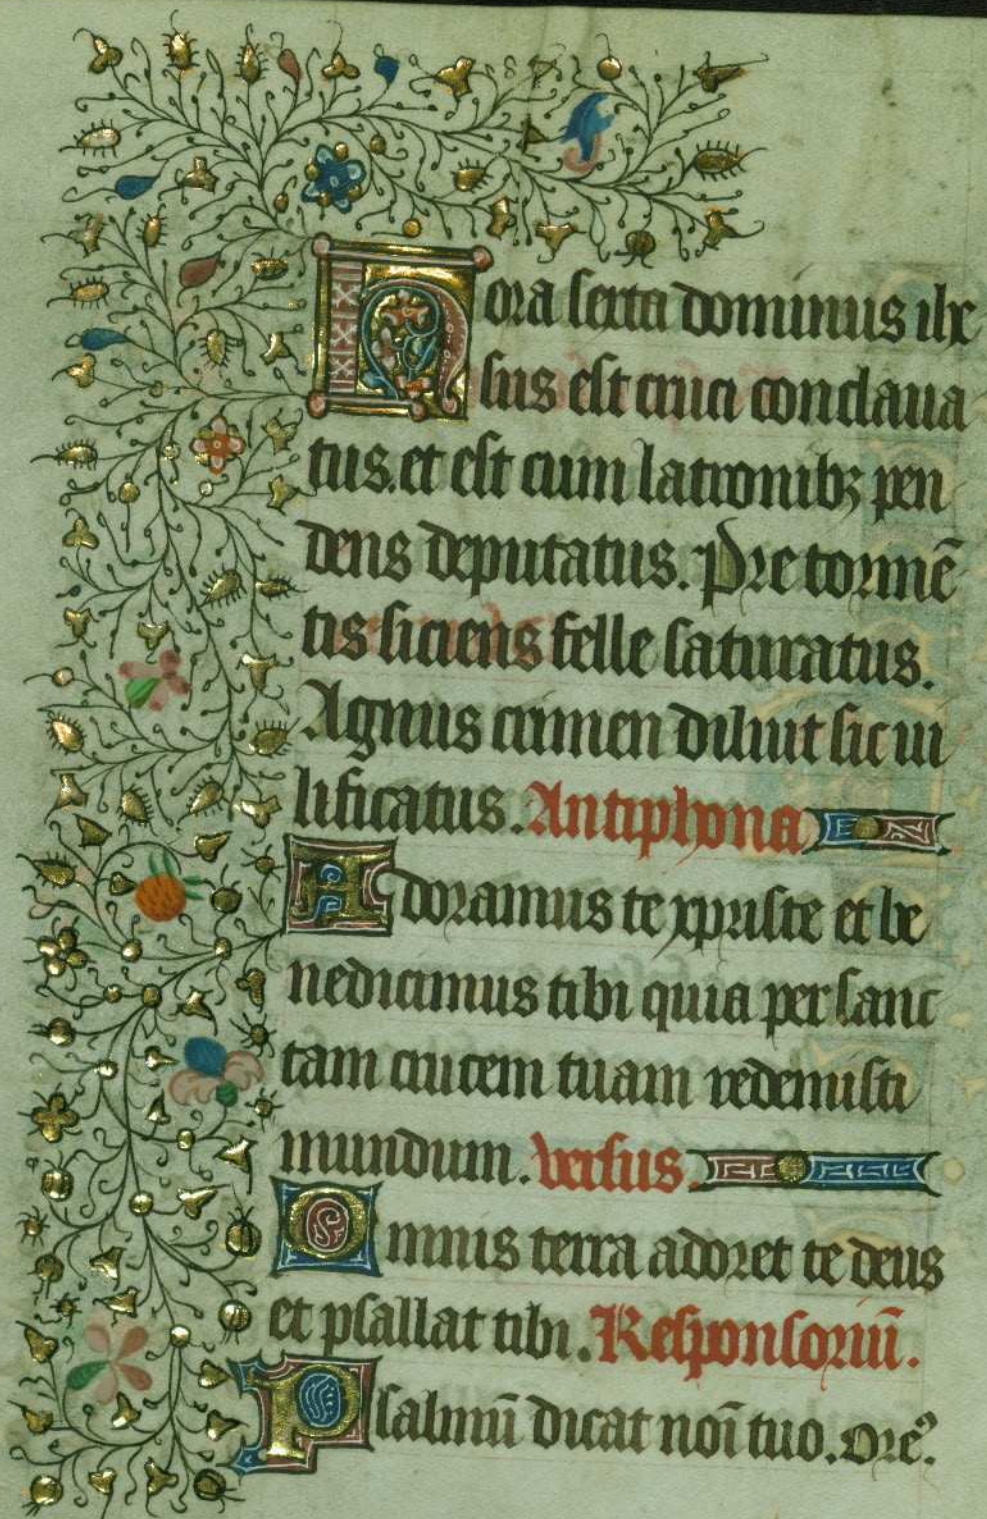 Hora serta dominus ihe
sus est cruci conclaua
tus. et est cum latronibꝫ pen
dens deputatus. Pre tormē
tis siciens felle saturatus.
Agnus crimen diluit sic ui
lificatus. Antiphona
Adoramus te xpriste et be
nedicimus tibi quia per sanc
tam crucem tuam redemisti
mundum. versus.
Omnis terra adoret te deus
et psallat tibi. Responsoriū.
Psalmū dicat noī tuo. Ore᷒.